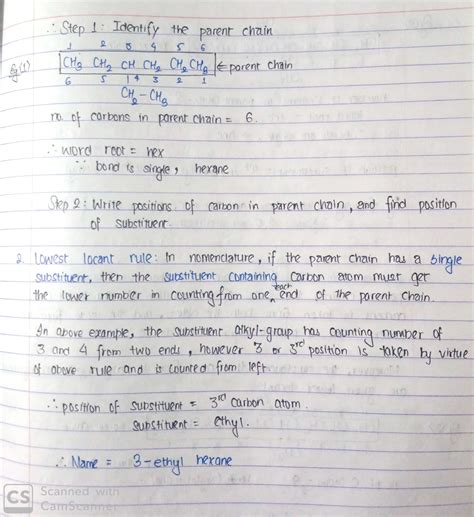 ∴ Step 1: Identify the parent chain
1 2 3 4 5 6
Eg(1) CH3 CH2 CH CH2 CH2 CH3 ← parent chain
6 5 4 3 2 1
CH2 - CH3
no. of carbons in parent chain = 6.
∴ word root = hex
∵ bond is single, hexane
Step 2: Write positions of carbon in parent chain, and find position
of substituent.
2. Lowest locant rule: In nomenclature, if the parent chain has a single
substituent, then the substituent containing carbon atom must get
the lower number in counting from one each end of the parent chain.
In above example, the substituent alkyl-group has counting number of
3 and 4 from two ends, however 3 or 3rd position is taken by virtue
of above rule and is counted from left.
∴ position of substituent = 3rd carbon atom.
substituent = ethyl.
∴ Name = 3-ethyl hexane
CS Scanned with
CamScanner